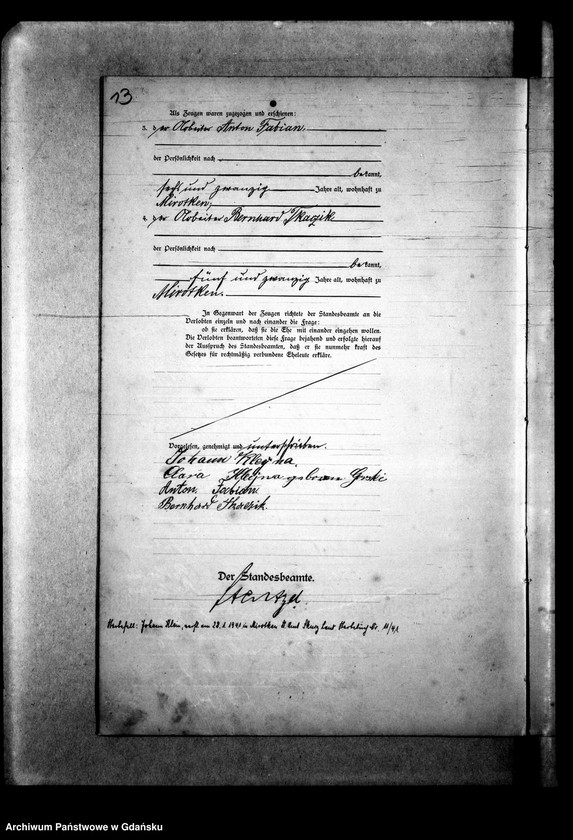 13
Als Zeugen waren zugezogen und erschienen:
3. der Arbeiter Anton Fabian,
der Persönlichkeit nach
bekannt,
sechs und zwanzig Jahre alt, wohnhaft zu
Mirotken,
4. der Arbeiter Bernhard Tkaczik
der Persönlichkeit nach
bekannt,
fünf und zwanzig Jahre alt, wohnhaft zu
Mirotken.
In Gegenwart der Zeugen richtete der Standesbeamte an die
Verlobten einzeln und nach einander die Frage:
ob sie erklären, daß sie die Ehe mit einander eingehen wollen.
Die Verlobten beantworteten diese Frage bejahend und erfolgte hierauf
der Ausspruch des Standesbeamten, daß er sie nunmehr kraft des
Gesetzes für rechtmäßig verbundene Eheleute erkläre.
Vorgelesen, genehmigt und unterschrieben.
Johann Klegna.
Clara Klegna geboren
Anton Fabian
Bernhard Tkaczik.
Der Standesbeamte.
Sterbefall: Johann am 28.1.1941 in Mirotken Nr. 11/41
Archiwum Państwowe w Gdańsku